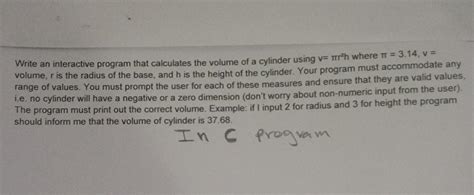 Write an interactive program that calculates the volume of a cylinder using v= πr²h where π = 3.14, v =
volume, r is the radius of the base, and h is the height of the cylinder. Your program must accommodate any
range of values. You must prompt the user for each of these measures and ensure that they are valid values,
i.e. no cylinder will have a negative or a zero dimension (don't worry about non-numeric input from the user).
The program must print out the correct volume. Example: if I input 2 for radius and 3 for height the program
should inform me that the volume of cylinder is 37.68.
In C program